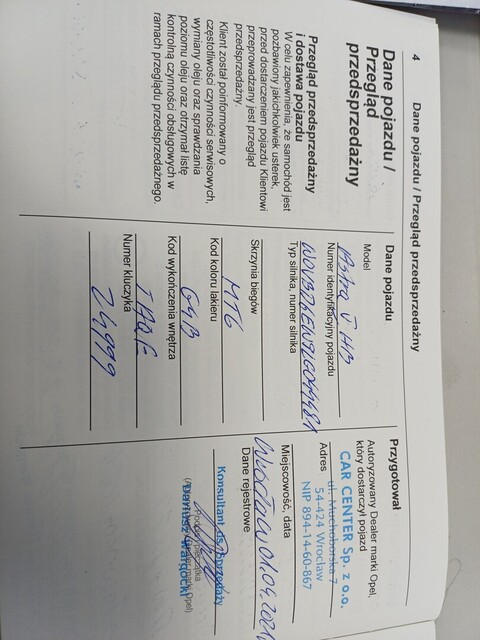 4
Dane pojazdu / Przegląd przedsprzedażny
Dane pojazdu /
Przegląd
przedsprzedażny
Przegląd przedsprzedażny
i dostawa pojazdu
W celu zapewnienia, że samochód jest
pozbawiony jakichkolwiek usterek,
przed dostarczeniem pojazdu Klientowi
przeprowadzany jest przegląd
przedsprzedażny.
Klient został poinformowany o
częstotliwości czynności serwisowych,
wymiany oleju oraz sprawdzania
poziomu oleju oraz otrzymał listę
kontrolną czynności obsługowych w
ramach przeglądu przedsprzedażnego.
Dane pojazdu
Model
Astra J HB
Numer identyfikacyjny pojazdu
Typ silnika, numer silnika
Skrzynia biegów
MT6
Kod koloru lakieru
G4B
Kod wykończenia wnętrza
Numer kluczyka
Przygotował
Autoryzowany Dealer marki Opel,
który dostarczył pojazd
CAR CENTER Sp. z o.o.
Adres ul. Muchoborska 7
54-424 Wrocław
NIP 894-14-60-867
Miejscowość, data
Wrocław 01.04.2021
Dane rejestrowe
Konsultant ds. Sprzedaży
Dariusz